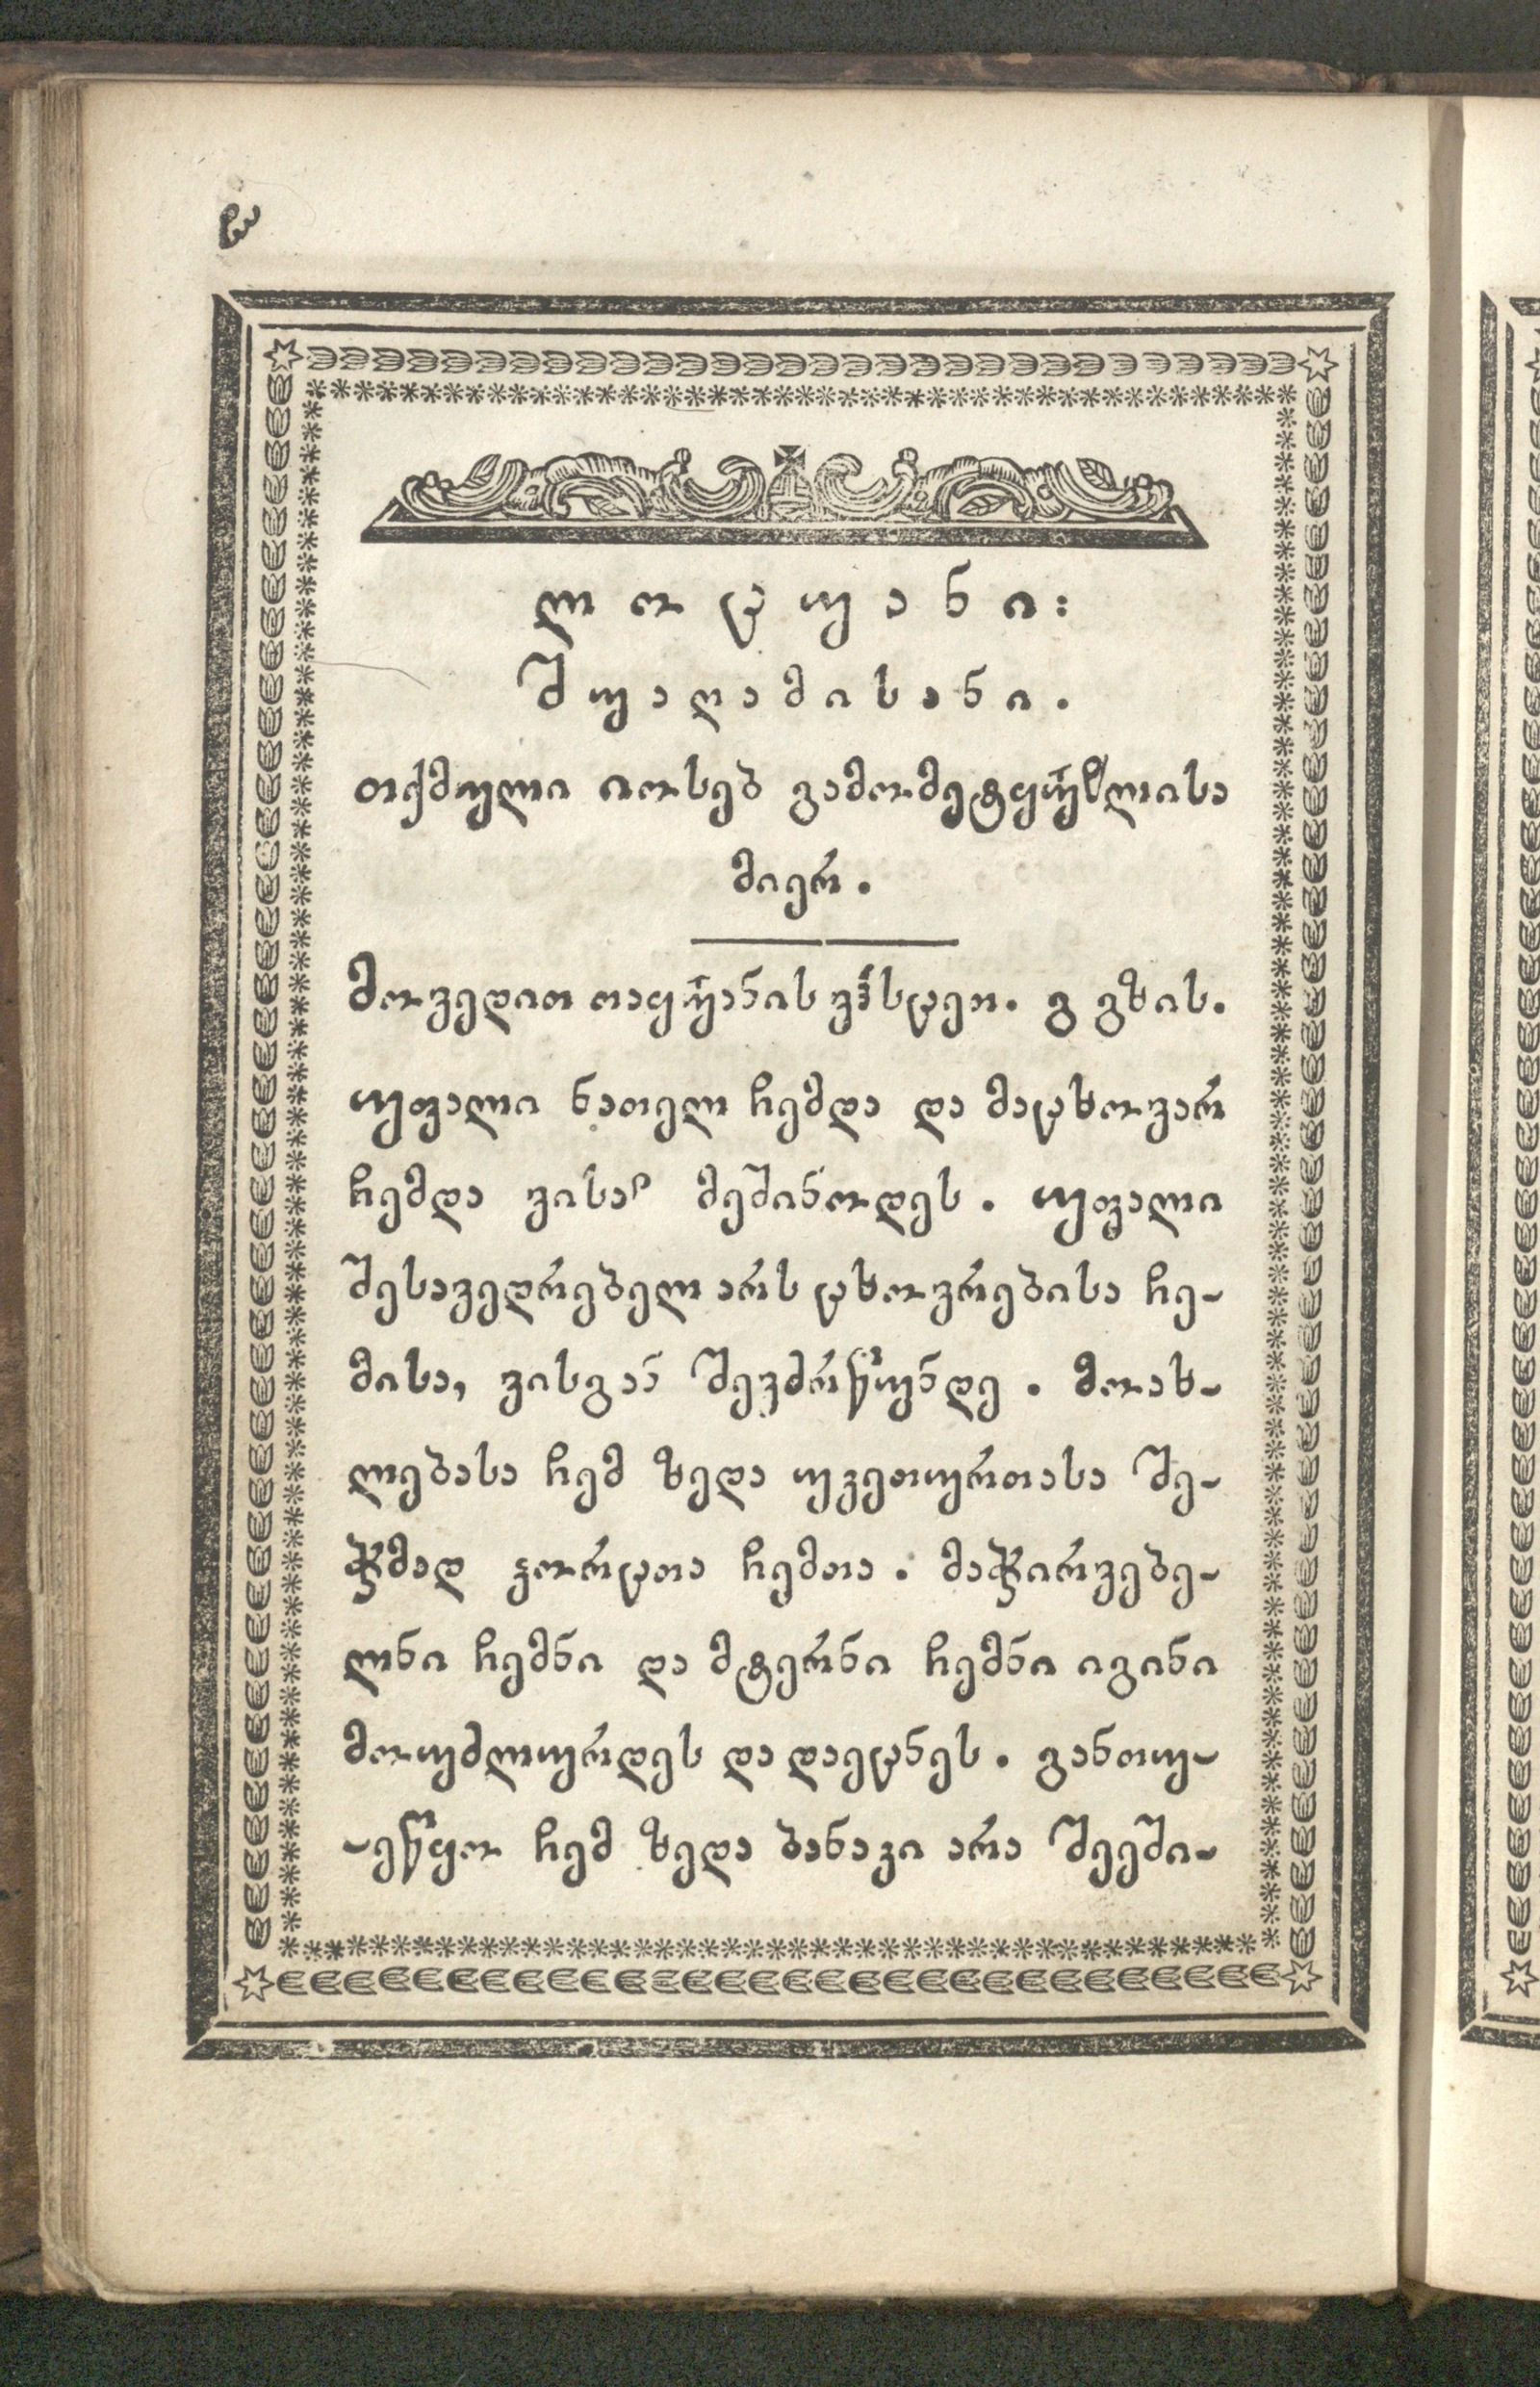 ჱ
ლოცუანი:
შუაღამისანი.
თქმული იოსებ გამომეტყუჱლისა
მიერ.
მოვედით თაყუანის ვსცეთ. გ გზის.
უფალი ნათელ ჩემდა და მაცხოვარ
ჩემდა ვისაჲ მეშინოდეს. უფალი
შესავედრებელ არს ცხოვრებისა ჩე-
მისა, ვისგან შევძრწუნდე. მოახ-
ლებასა ჩემ ზედა უკეთურთასა შე-
ჭმად ჴორცთა ჩემთა. მაჭირვებე-
ლნი ჩემნი და მტერნი ჩემნი იგინი
მოუძლურდეს და დაეცნეს. განთუ-
-ეწყო ჩემ ზედა ბანაკი არა შეეში-